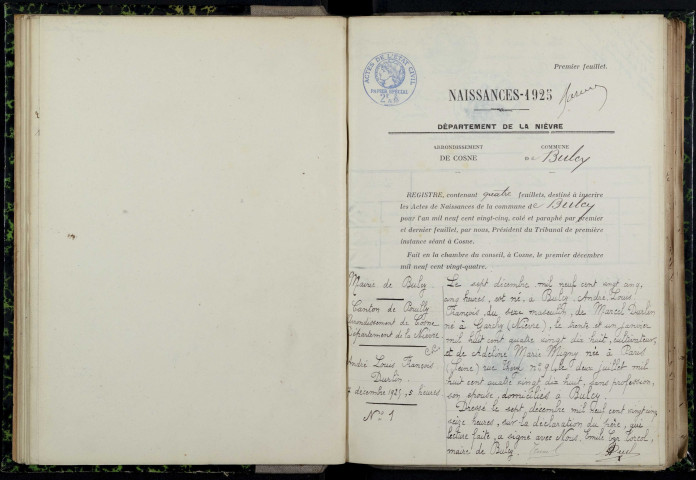 Premier feuillet.
ACTES DE L'ÉTAT CIVIL
PAPIER SPÉCIAL
NAISSANCES-1925
DÉPARTEMENT DE LA NIÈVRE
ARRONDISSEMENT
DE COSNE
COMMUNE
de Bulcy
REGISTRE, contenant quatre feuillets, destiné à inscrire
les Actes de Naissances de la commune de Bulcy
pour l'an mil neuf cent vingt-cinq, coté et paraphé par premier
et dernier feuillet, par nous, Président du Tribunal de première
instance séant à Cosne.
Fait en la chambre du conseil, à Cosne, le premier décembre
mil neuf cent vingt-quatre.
Mairie de Bulcy
Canton de Pouilly
Arrondissement de Cosne
Département de la Nièvre
André Louis François
Durlin
7 décembre 1925, 5 heures
N° 1
Le sept décembre mil neuf cent vingt cinq,
cinq heures, est né, à Bulcy, André Louis
François, du sexe masculin, de Marcel Durlin
né à Garchy (Nièvre), le trente et un janvier
mil huit cent quatre vingt dix huit, cultivateur,
et de Adeline Marie Migny née à Paris
(Seine) rue le deux juillet mil
huit cent quatre vingt dix huit, sans profession,
son épouse, domiciliés à Bulcy.
Dressé le sept décembre mil neuf cent vingt cinq
seize heures, sur la déclaration du père, qui
lecture faite, a signé avec Nous, Emile
maire de Bulcy.